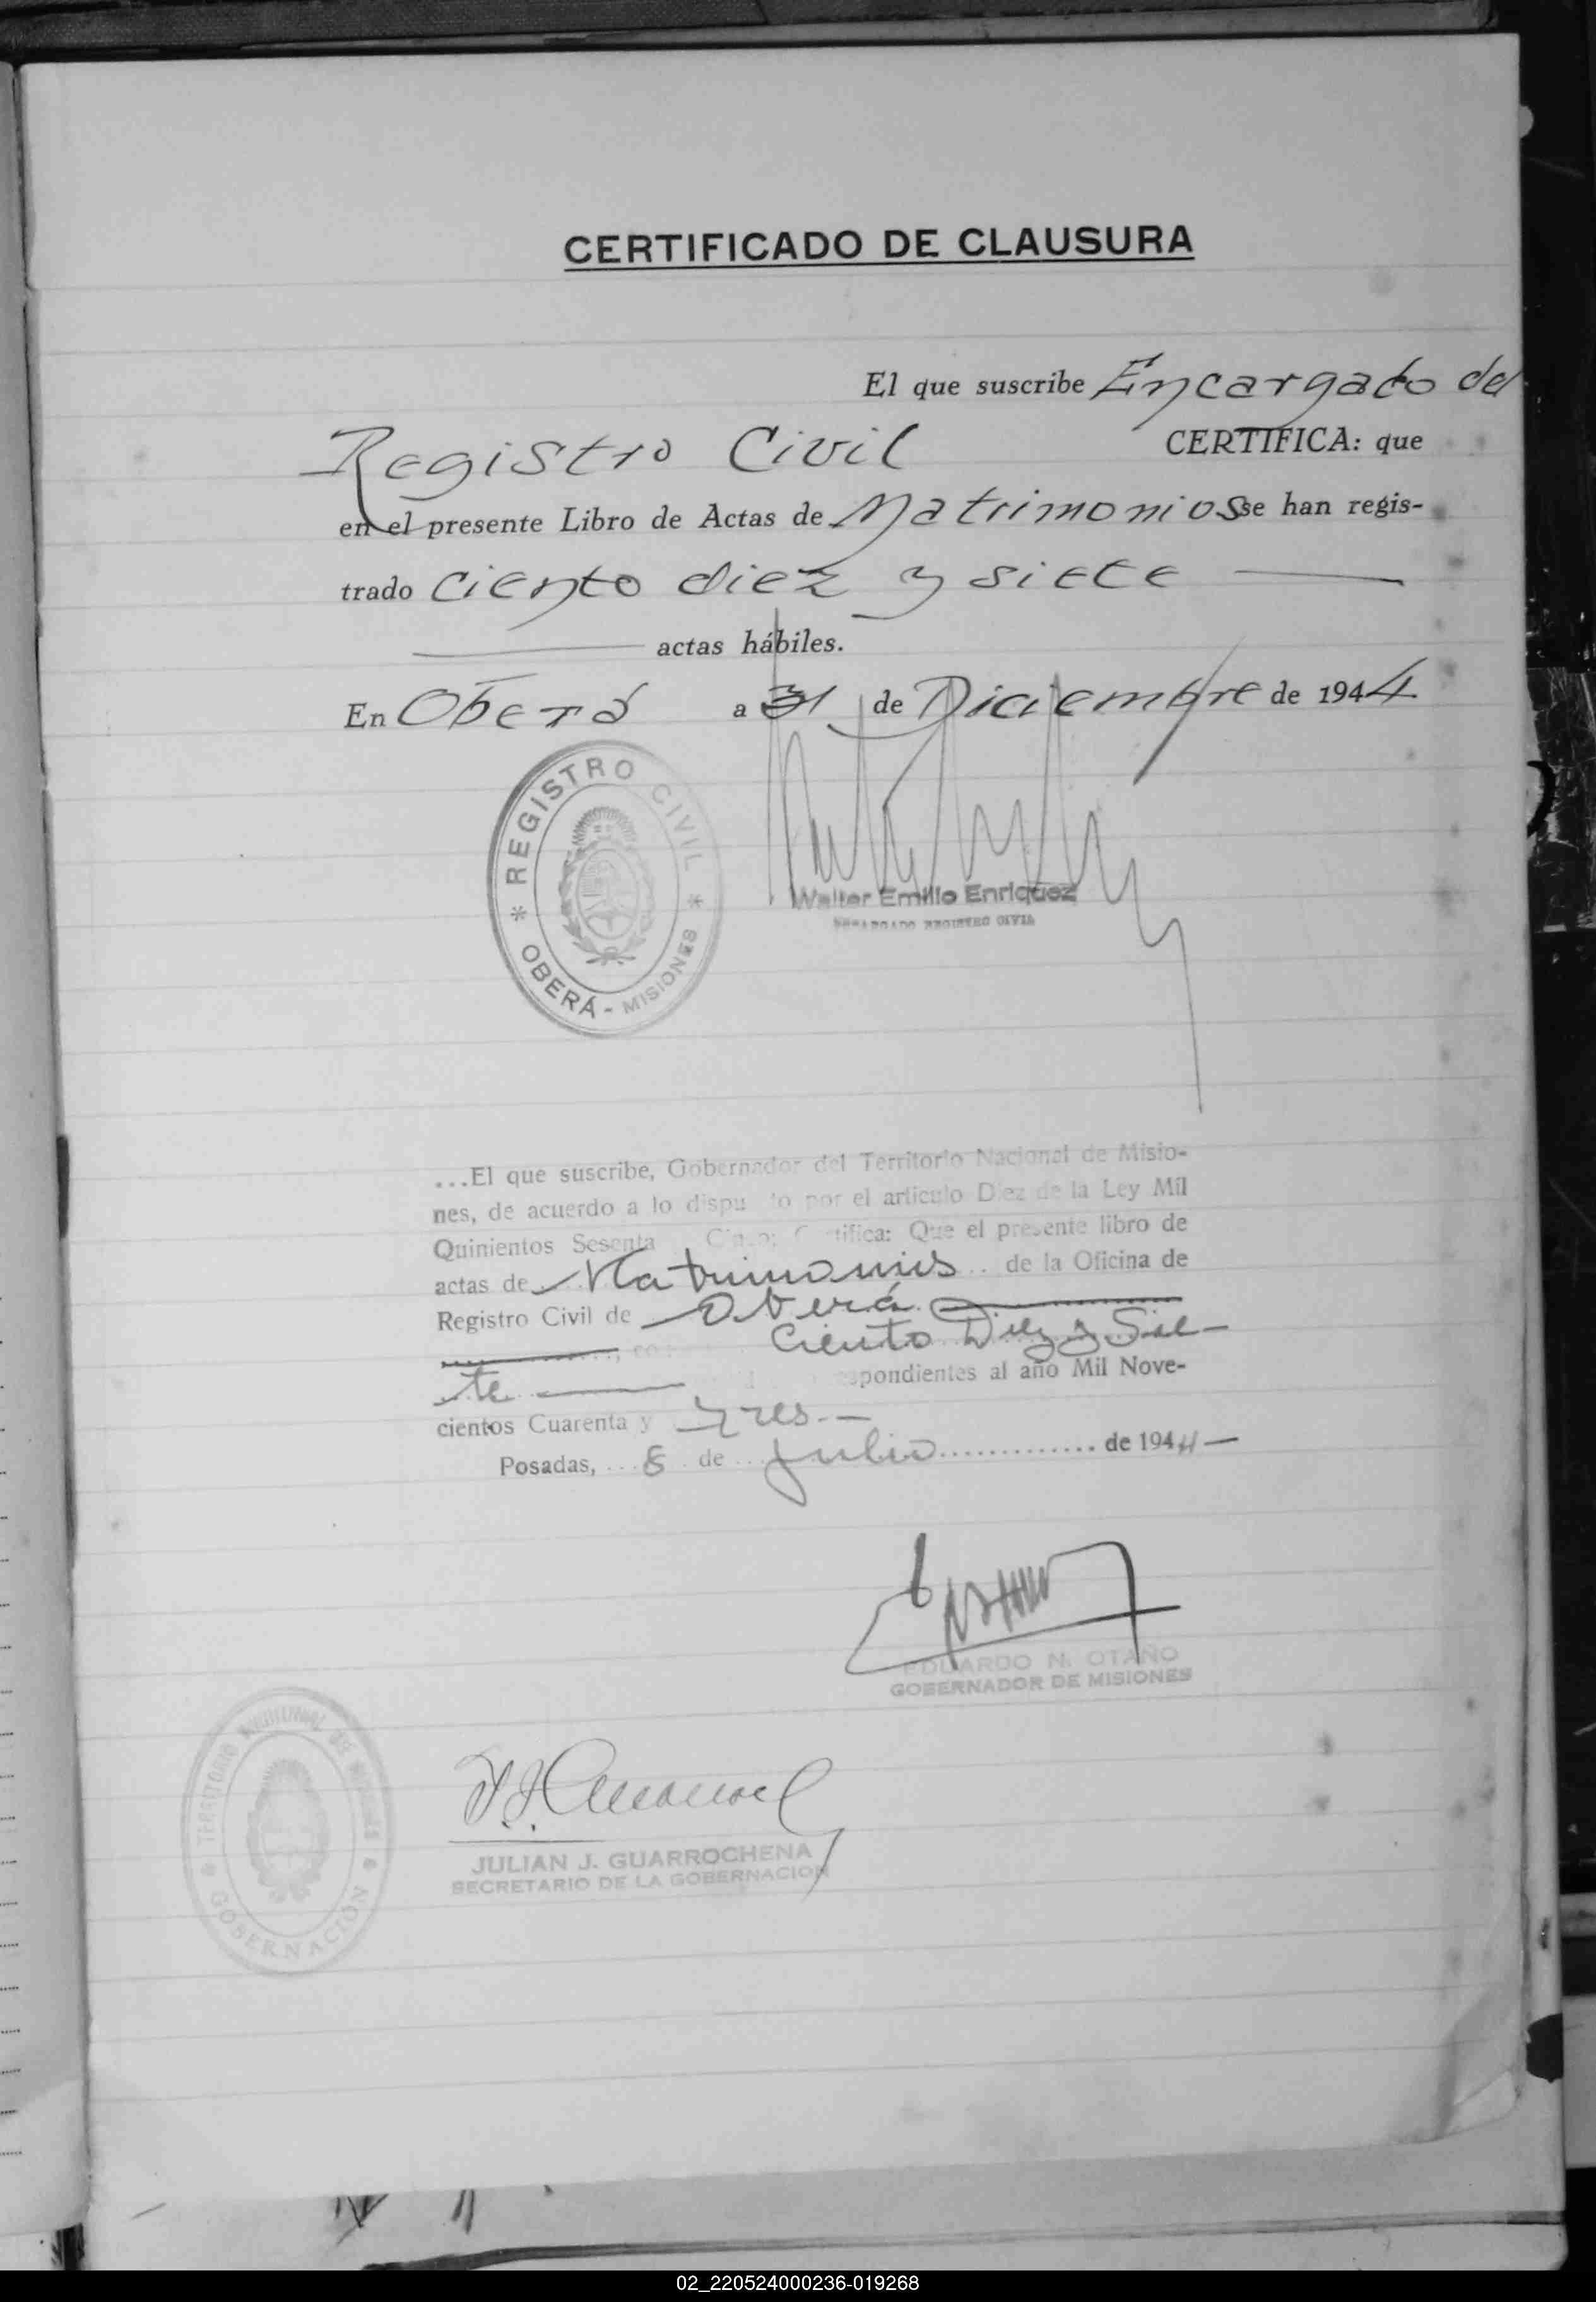 CERTIFICADO DE CLAUSURA
El que suscribe Encargado del
Registro Civil CERTIFICA: que
en el presente Libro de Actas de Matrimonios se han regis-
trado ciento diez y siete
actas hábiles.
En Oberá a 31 de Diciembre de 1944
REGISTRO CIVIL
OBERÁ - MISIONES
Walter Emilio Enriquez
ENCARGADO REGISTRO CIVIL
...El que suscribe, Gobernador del Territorio Nacional de Misio-
nes, de acuerdo a lo dispu to por el articulo Diez de la Ley Mil
Quinientos Sesenta Cinco; Certifica: Que el presente libro de
actas de Matrimonios de la Oficina de
Registro Civil de Oberá
Ciento Diez y Sie-
te pondientes al año Mil Nove-
cientos Cuarenta y Tres.-
Posadas, 8 de Julio de 1944
EDUARDO N. OTAÑO
GOBERNADOR DE MISIONES
TERRITORIO NACIONAL DE MISIONES
GOBERNACIÓN
JULIAN J. GUARROCHENA
SECRETARIO DE LA GOBERNACION
02_220524000236-019268